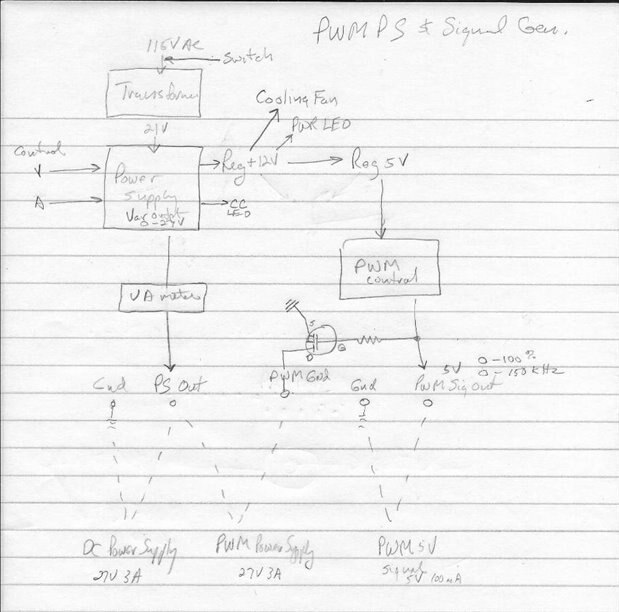 PWM PS & Signal Gen.
115VAC
Switch
Transformer
21V
Cooling Fan
PWR LED
Control
V
A
Power
Supply
Var output
Reg +12V
Reg 5V
CC
LED
PWM
control
VA meter
S
D
G
PWM Gnd
5V 0-100%
0-150kHz
Gnd
PS Out
Gnd
PWM Sig Out
DC Power Supply
27V 3A
PWM Power Supply
27V 3A
PWM 5V
Signal
5V 100mA